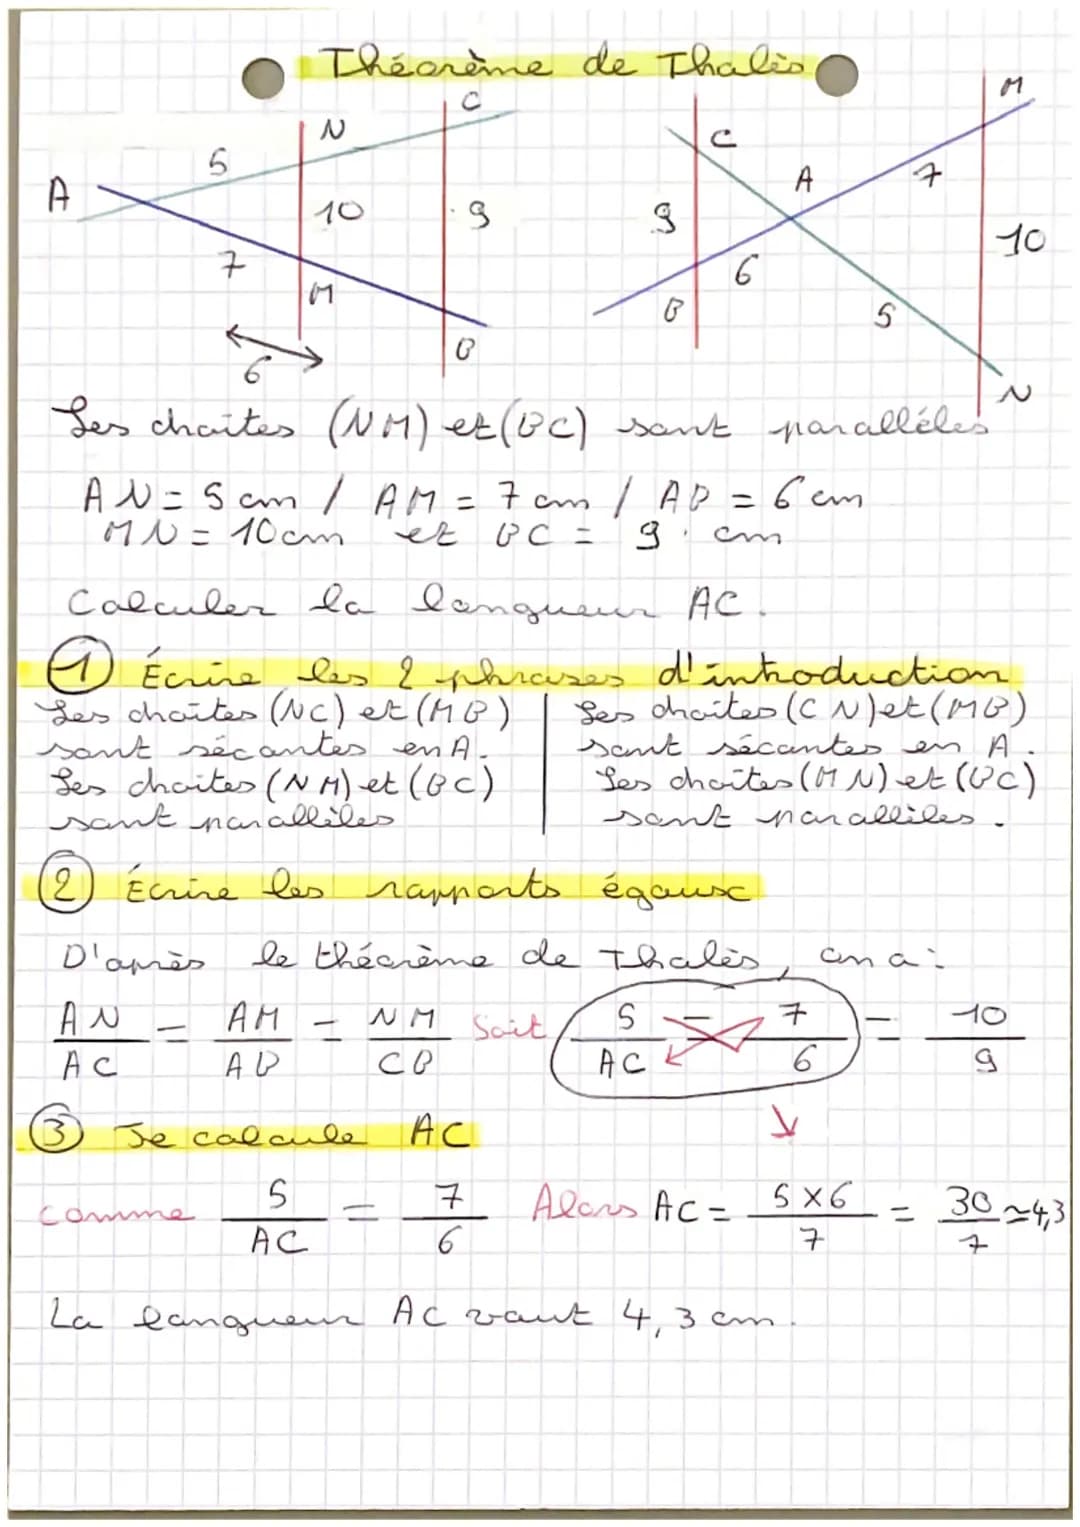 Théorème de Thalès
A 5 N C
10 9
7 M
6 B
C A 7 M
9 6 10
B 5 N
Les droites (NM) et (BC) sont parallèles
AN = 5 cm / AM = 7 cm / AB = 6 cm
MN = 10 cm et BC = 9 cm
Calculer la longueur AC.
① Écrire les 2 phrases d'introduction
Les droites (NC) et (MB)
sont sécantes en A.
Les droites (NM) et (BC)
sont parallèles
Les droites (CN) et (MB)
sont sécantes en A.
Les droites (MN) et (BC)
sont parallèles.
② Écrire les rapports égaux
D'après le théorème de Thalès, on a :
AN/AC = AM/AB = NM/CB Soit 5/AC = 7/6 = 10/9
③ Je calcule AC
comme 5/AC = 7/6 Alors AC = 5×6/7 = 30/7 ≃ 4,3
La longueur AC vaut 4,3 cm.